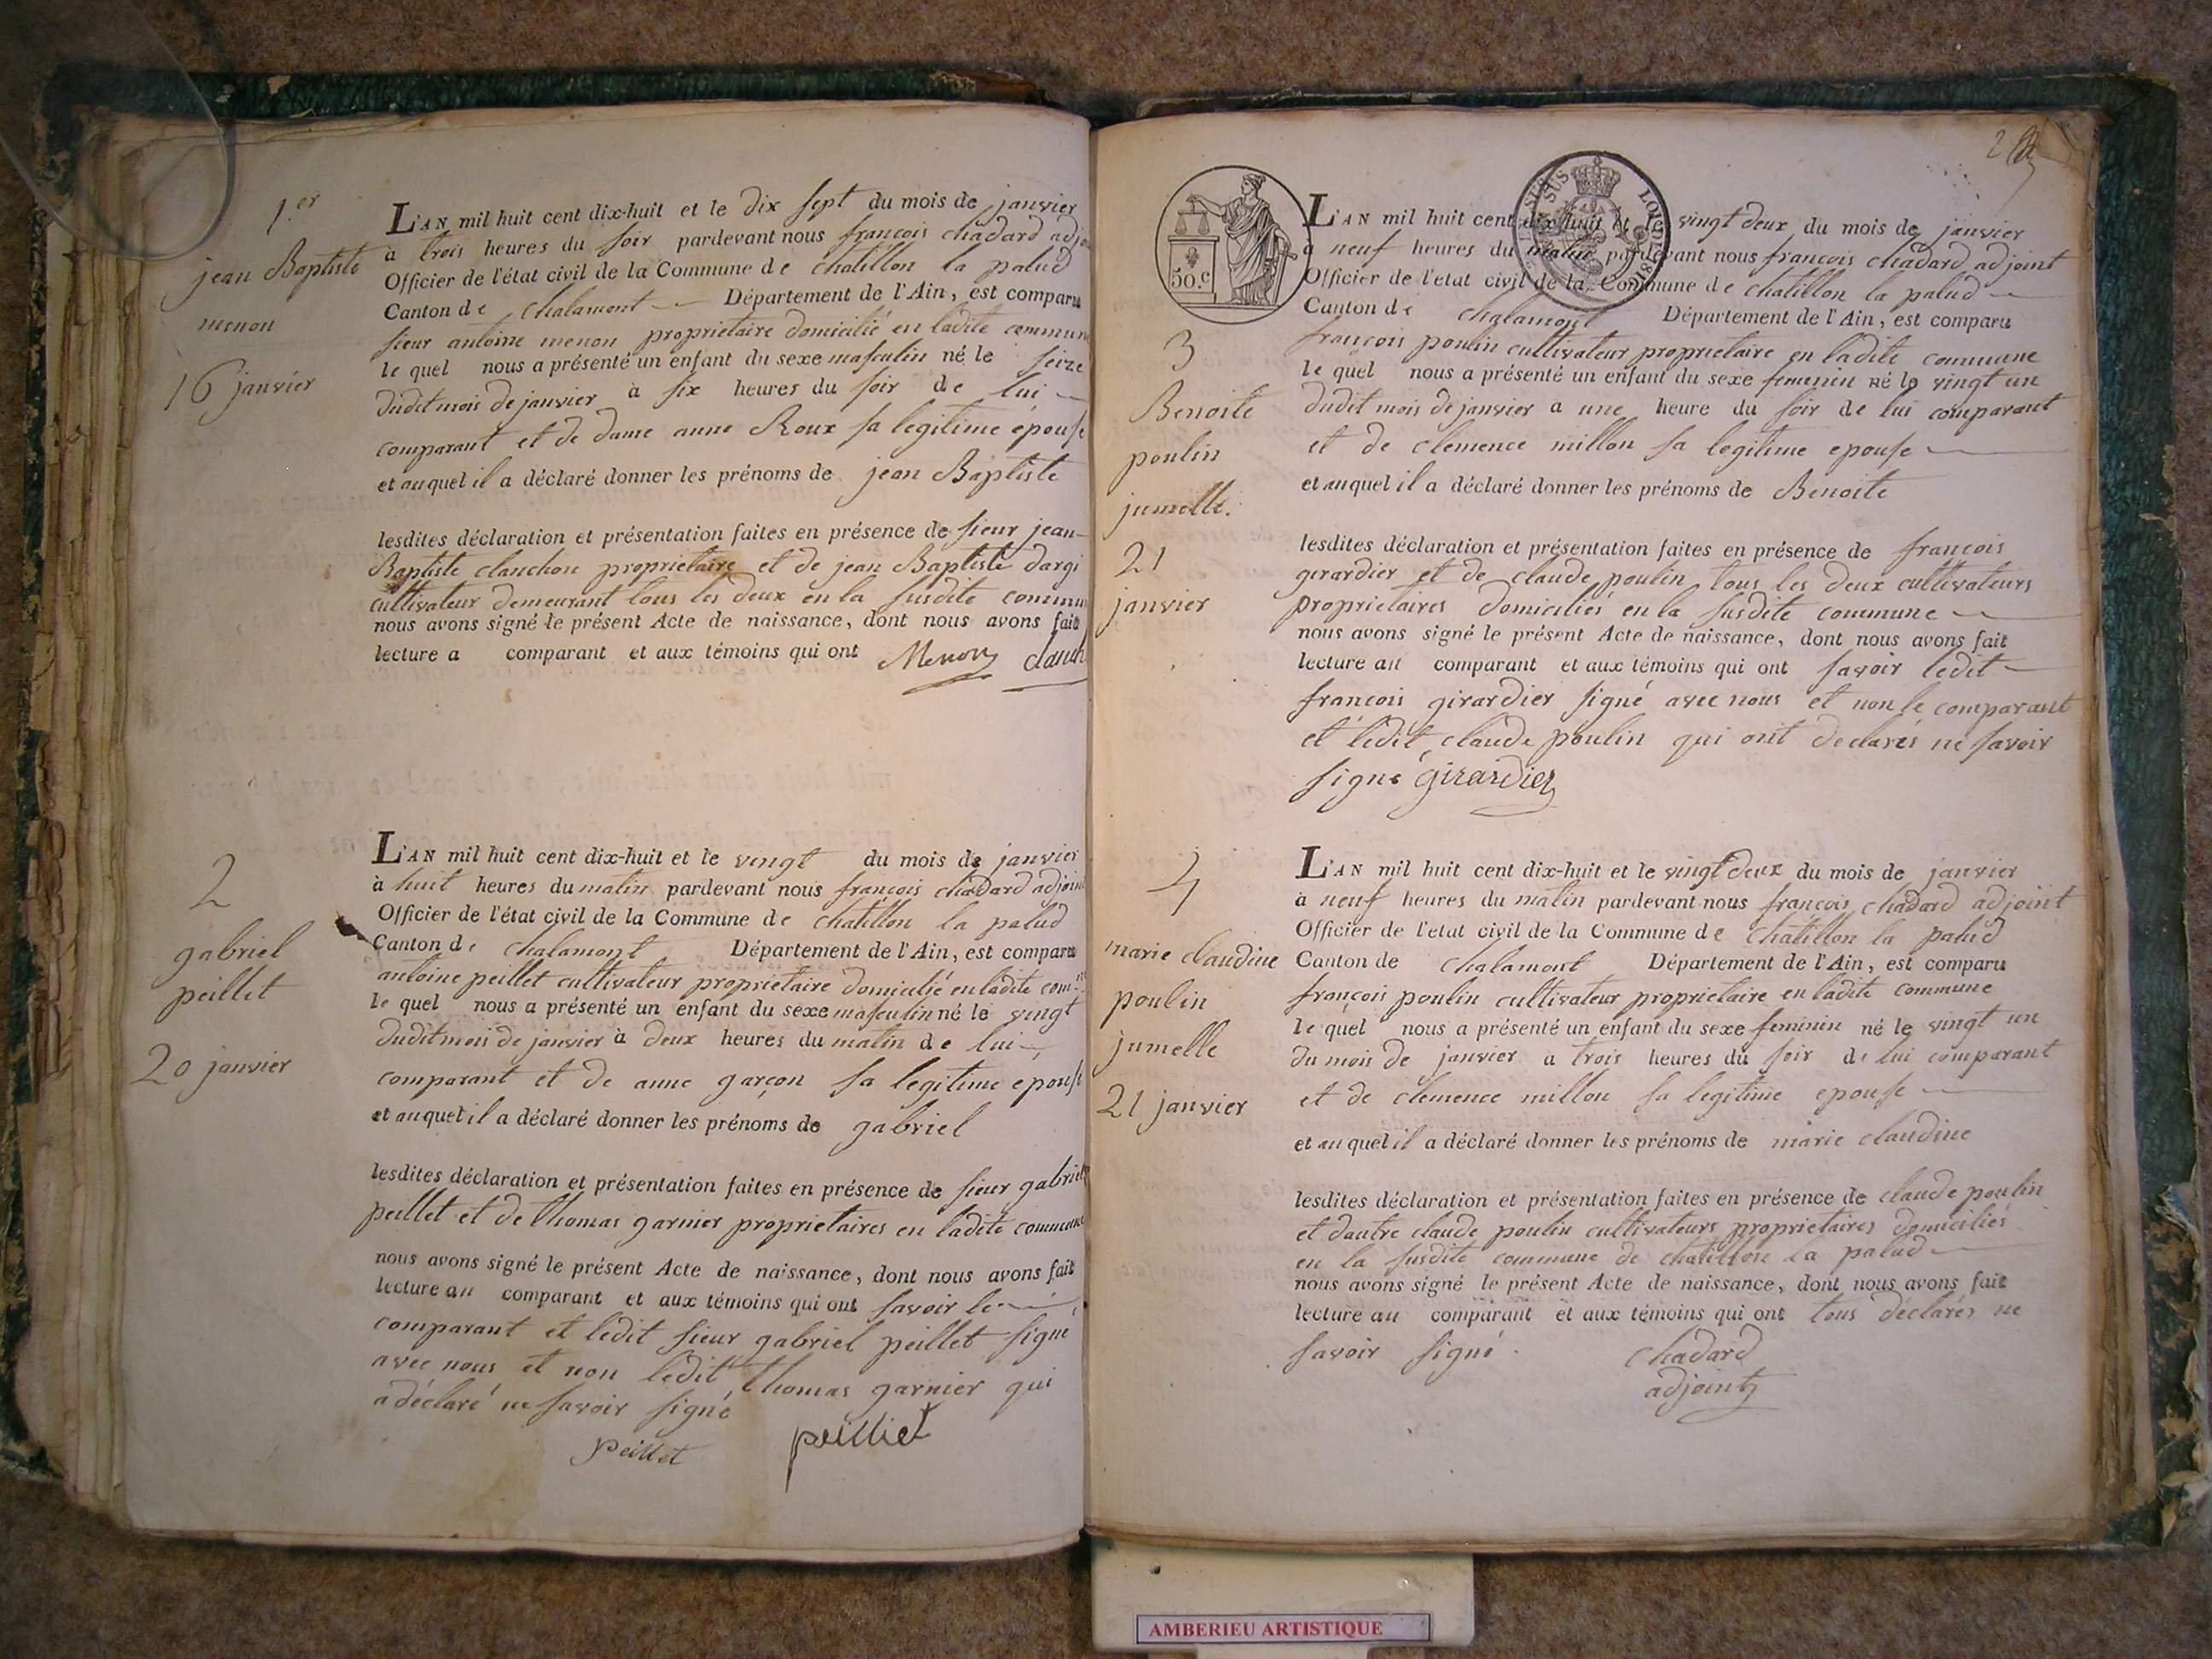 1.er
jean Baptiste
menon
16 janvier
L'AN mil huit cent dix-huit et le dix sept du mois de janvier
à trois heures du soir pardevant nous francois chadard
Officier de l'état civil de la Commune de chatillon la palud
Canton de chalamont Département de l'Ain, est comparu
sieur antoine menon proprietaire domicilié en ladite commun
le quel nous a présenté un enfant du sexe masculin né le seize
dudit mois de janvier à six heures du soir de lui
comparant et de dame anne Roux sa legitime épouse
et auquel il a déclaré donner les prénoms de jean Baptiste
lesdites déclaration et présentation faites en présence de sieur jean-
Baptiste clanchon proprietaire et de jean Baptiste dargi
cultivateur demeurant tous les deux en la susdite commu
nous avons signé le présent Acte de naissance, dont nous avons fait
lecture a comparant et aux témoins qui ont Menon
2
gabriel
peillet
20 janvier
L'AN mil huit cent dix-huit et le vingt du mois de janvier
à huit heures du matin pardevant nous francois chadard adjoin
Officier de l'état civil de la Commune de chatillon la palud
Canton de chalamont Département de l'Ain, est comparu
antoine peillet cultivateur proprietaire domicilié en ladite com-
le quel nous a présenté un enfant du sexe masculin né le vingt
dudit mois de janvier à deux heures du matin de lui
comparant et de anne garçon sa legitime épouse
et auquel il a déclaré donner les prénoms de gabriel
lesdites déclaration et présentation faites en présence de sieur gabriel
peillet et de thomas garnier proprietaires en ladite commune
nous avons signé le présent Acte de naissance, dont nous avons fait
lecture au comparant et aux témoins qui ont savoir le
comparant et ledit sieur gabriel peillet signé
avec nous et non ledit thomas garnier qui
a déclaré ne savoir signé
peillet peilliet
2
50.c
LOI DE 1816
L'AN mil huit cent dix-huit et le vingt deux du mois de janvier
à neuf heures du matin pardevant nous francois chadard adjoint
Officier de l'etat civil de la Commune de chatillon la palud
Canton de chalamont Département de l'Ain, est comparu
françois poulin cultivateur proprietaire en ladite commune
le quel nous a présenté un enfant du sexe femenin né le vingt un
dudit mois de janvier a une heure du soir de lui comparant
et de clemence millon sa legitime epouse
et auquel il a déclaré donner les prénoms de Benoite
3
Benoite
poulin
jumelle.
21
janvier
lesdites déclaration et présentation faites en présence de francois
girardier et de claude poulin tous les deux cultivateurs
proprietaires domiciliés en la susdite commune
nous avons signé le présent Acte de naissance, dont nous avons fait
lecture au comparant et aux témoins qui ont savoir ledit
francois girardier signé avec nous et non le comparant
et ledit claude poulin qui ont declarés ne savoir
signé girardier
4
marie claudine
poulin
jumelle
21 janvier
L'AN mil huit cent dix-huit et le vingt deux du mois de janvier
à neuf heures du matin pardevant nous françois chadard adjoint
Officier de l'etat civil de la Commune de chatillon la palud
Canton de chalamont Département de l'Ain, est comparu
françois poulin cultivateur proprietaire en ladite commune
le quel nous a présenté un enfant du sexe feminin né le vingt un
du mois de janvier a trois heures du soir de lui comparant
et de clemence millon sa legitime epouse
et au quel il a déclaré donner les prénoms de marie claudine
lesdites déclaration et présentation faites en présence de claude poulin
et dautre claude poulin cultivateurs proprietaires domiciliés
en la susdite commune de chatillon la palud
nous avons signé le présent Acte de naissance, dont nous avons fait
lecture au comparant et aux témoins qui ont tous déclarés ne
savoir signé. chadard
adjoint
AMBERIEU ARTISTIQUE